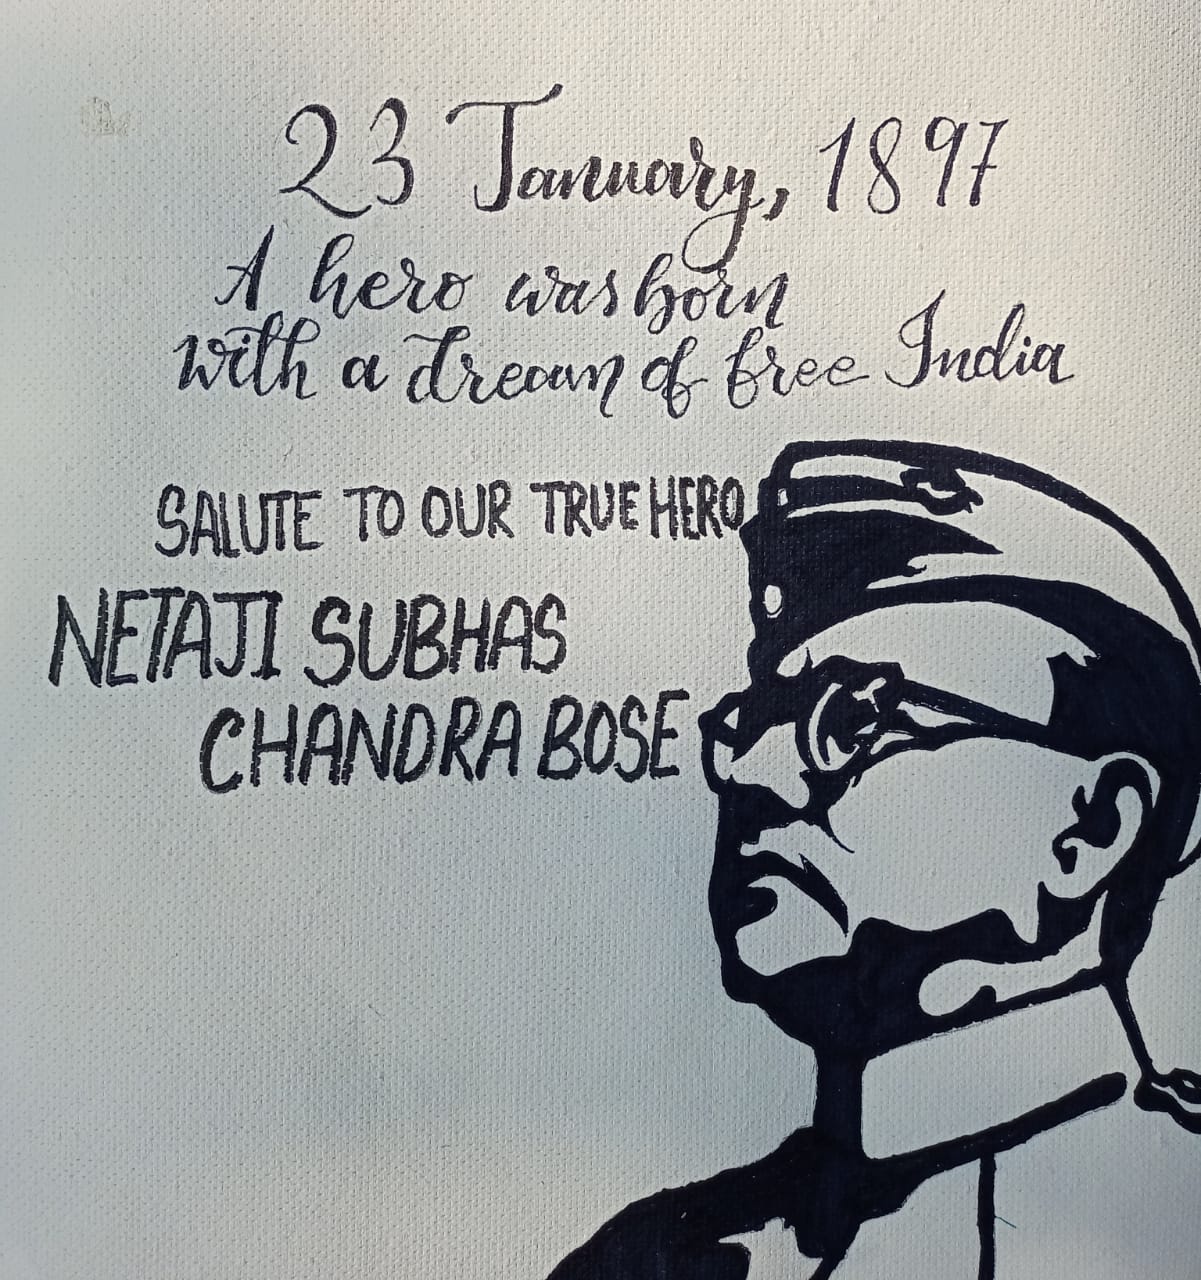 23 January, 1897
A hero was born
with a dream of free India
SALUTE TO OUR TRUE HERO
NETAJI SUBHAS
CHANDRA BOSE